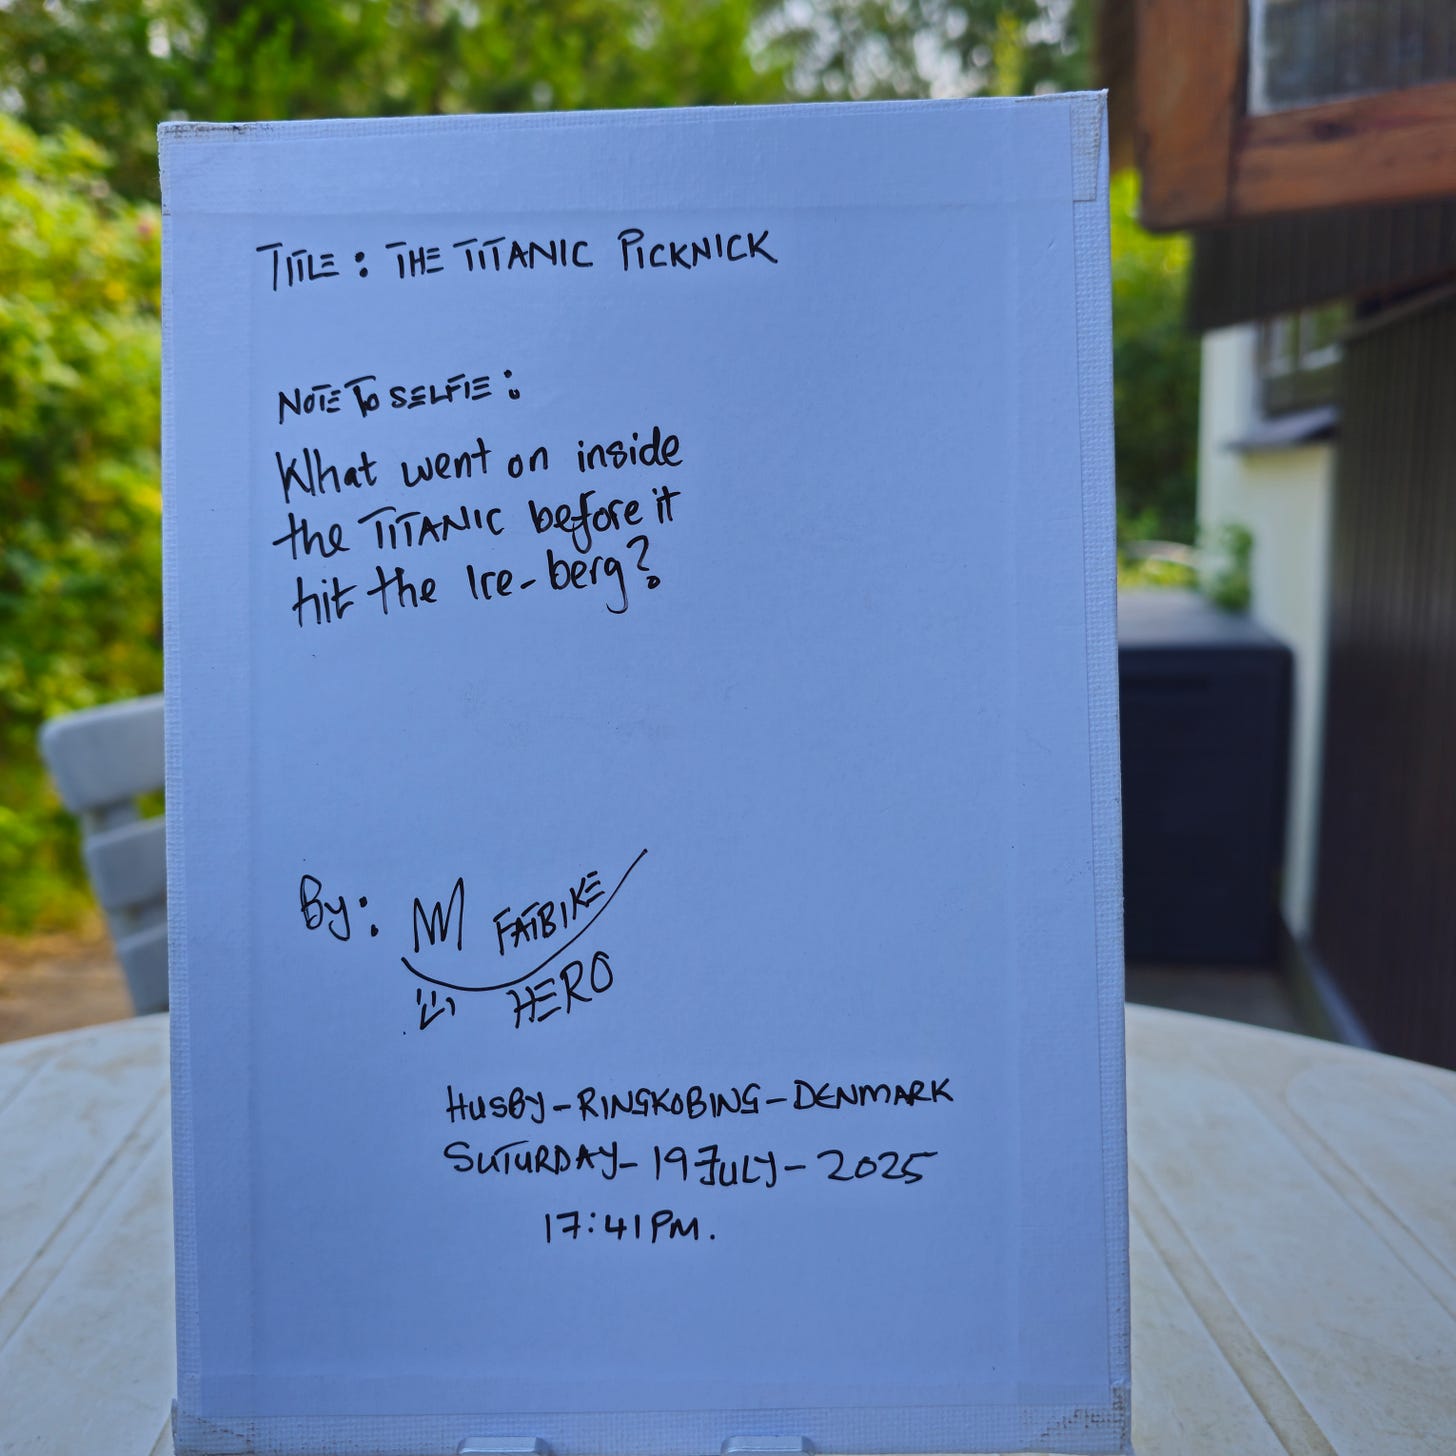 TITLE : THE TITANIC PICKNICK
NOTE TO SELFIE :
What went on inside
the TITANIC before it
hit the Ice-berg?
By : FATBIKE
HERO
HUSBY-RINGKOBING-DENMARK
SUTURDAY-19 JULY-2025
17:41PM.